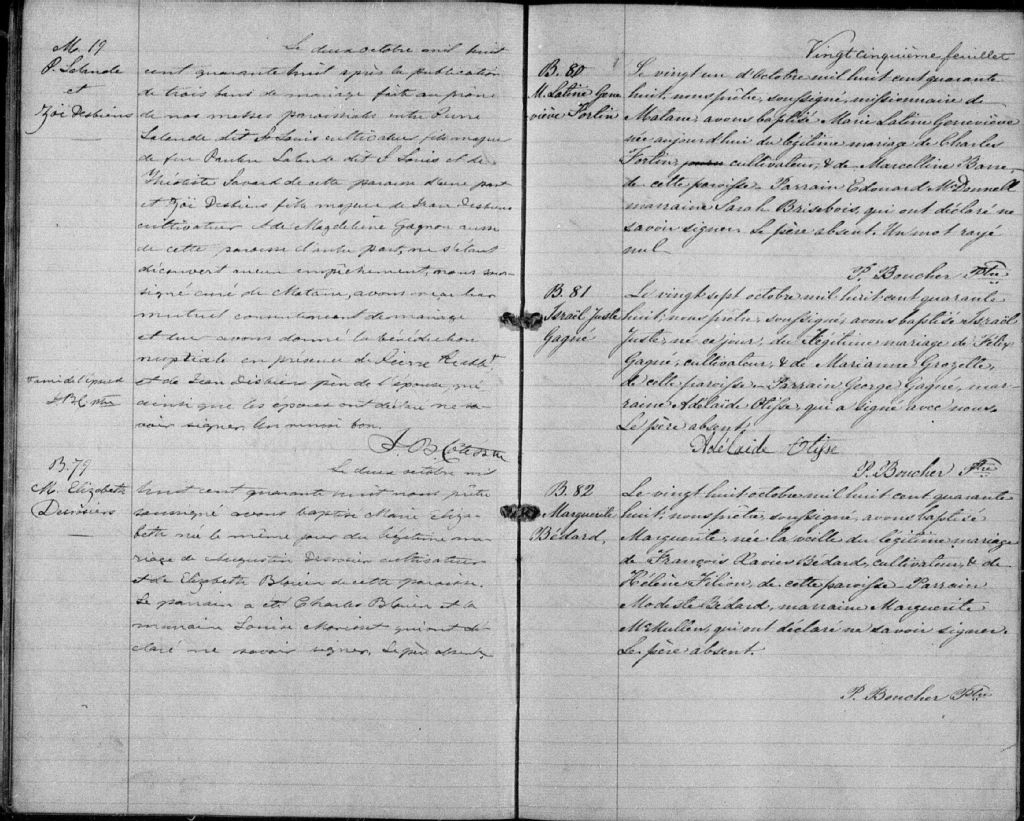 M. 19
P. Lalande
et
Zoé Desbiens
Le deux octobre mil huit
cent quarante huit après la publication
de trois bans de mariage faite au prône
de nos messes paroissiales entre Pierre
Lalande dit St Louis cultivateur fils majeur
de feu Lalande dit St Louis et de
Théotiste Savard de cette paroisse d'une part
et Zoé Desbiens fille majeure de Jean Desbiens
cultivateur & de Magdeleine Gagnon aussi
de cette paroisse d'autre part, ne s'étant
découvert aucun empêchement, nous sous-
signé curé de Matane, avons reçu leur
mutuel consentement de mariage
et leur avons donné la bénédiction
nuptiale en présence de Pierre
& de Jean Desbiens père de l'épouse, qui
ainsi que les époux ont déclaré ne sa-
voir signer. Un renvoi bon.
ami de l'époux
J. B. Côté Ptre
B. 79
M. Elizabeth
Desrosiers
Le deux octobre mil
huit cent quarante huit nous prêtre
soussigné avons baptisé Marie Eliza-
beth née le même jour du légitime ma-
riage de Augustin Desrosiers cultivateur
& de Elizabeth Blouin de cette paroisse.
Le parrain a été Charles Blouin et la
marraine Louise qui ont dé-
claré ne savoir signer. Le père absent.
Vingt cinquième feuillet
B. 80
M. Latine Gene
viève Fortin
Le vingt un d'Octobre mil huit cent quarante
huit, nous prêtre, soussigné, missionnaire de
Matane, avons baptisé Marie Latine Geneviève
née aujourd'hui du légitime mariage de Charles
Fortin, cultivateur, & de Marcelline Barre,
de cette paroisse. Parrain Edouard McDonnell
marraine Sarah Brisebois, qui ont déclaré ne
savoir signer. Le père absent. Un mot rayé
nul
P. Boucher Ptre
B. 81
Israël Juste
Gagné
Le vingt sept octobre mil huit cent quarante
huit, nous prêtre, soussigné, avons baptisé Israël
Juste, né ce jour, du légitime mariage de Félix
Gagné, cultivateur, & de Marianne Grozelle,
de cette paroisse. Parrain George Gagné, mar-
raine Adélaïde Otisse, qui a signé avec nous.
Le père absent.
Adélaide Otisse
P. Boucher Ptre
B. 82
Marguerite
Bédard,
Le vingt huit octobre mil huit cent quarante
huit, nous prêtre, soussigné, avons baptisé
Marguerite, née la veille du légitime mariage
de François Xavier Bédard, cultivateur, & de
Hélène Filion, de cette paroisse. Parrain
Modeste Bédard, marraine Marguerite
McMullen, qui ont déclaré ne savoir signer.
Le père absent.
P. Boucher Ptre